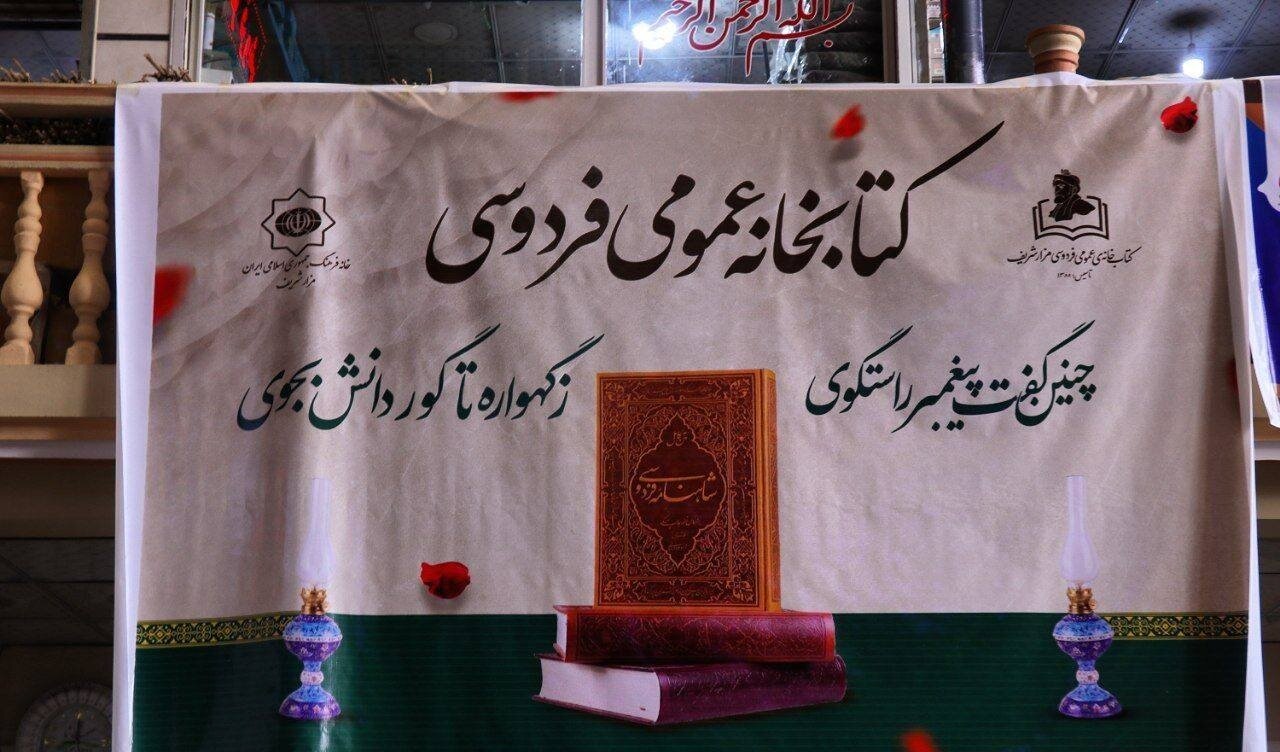 بسم الله الرحمن الرحیم
کتابخانه عمومی فردوسی
کتاب خانه‌ی عمومی فردوسی مزار شریف
تأسیس: ۱۳۸۸
خانه فرهنگ جمهوری اسلامی ایران
مزار شریف
چنین گفت پیغمبر راستگوی
ز گهواره تا گور دانش بجوی
شاهنامه فردوسی